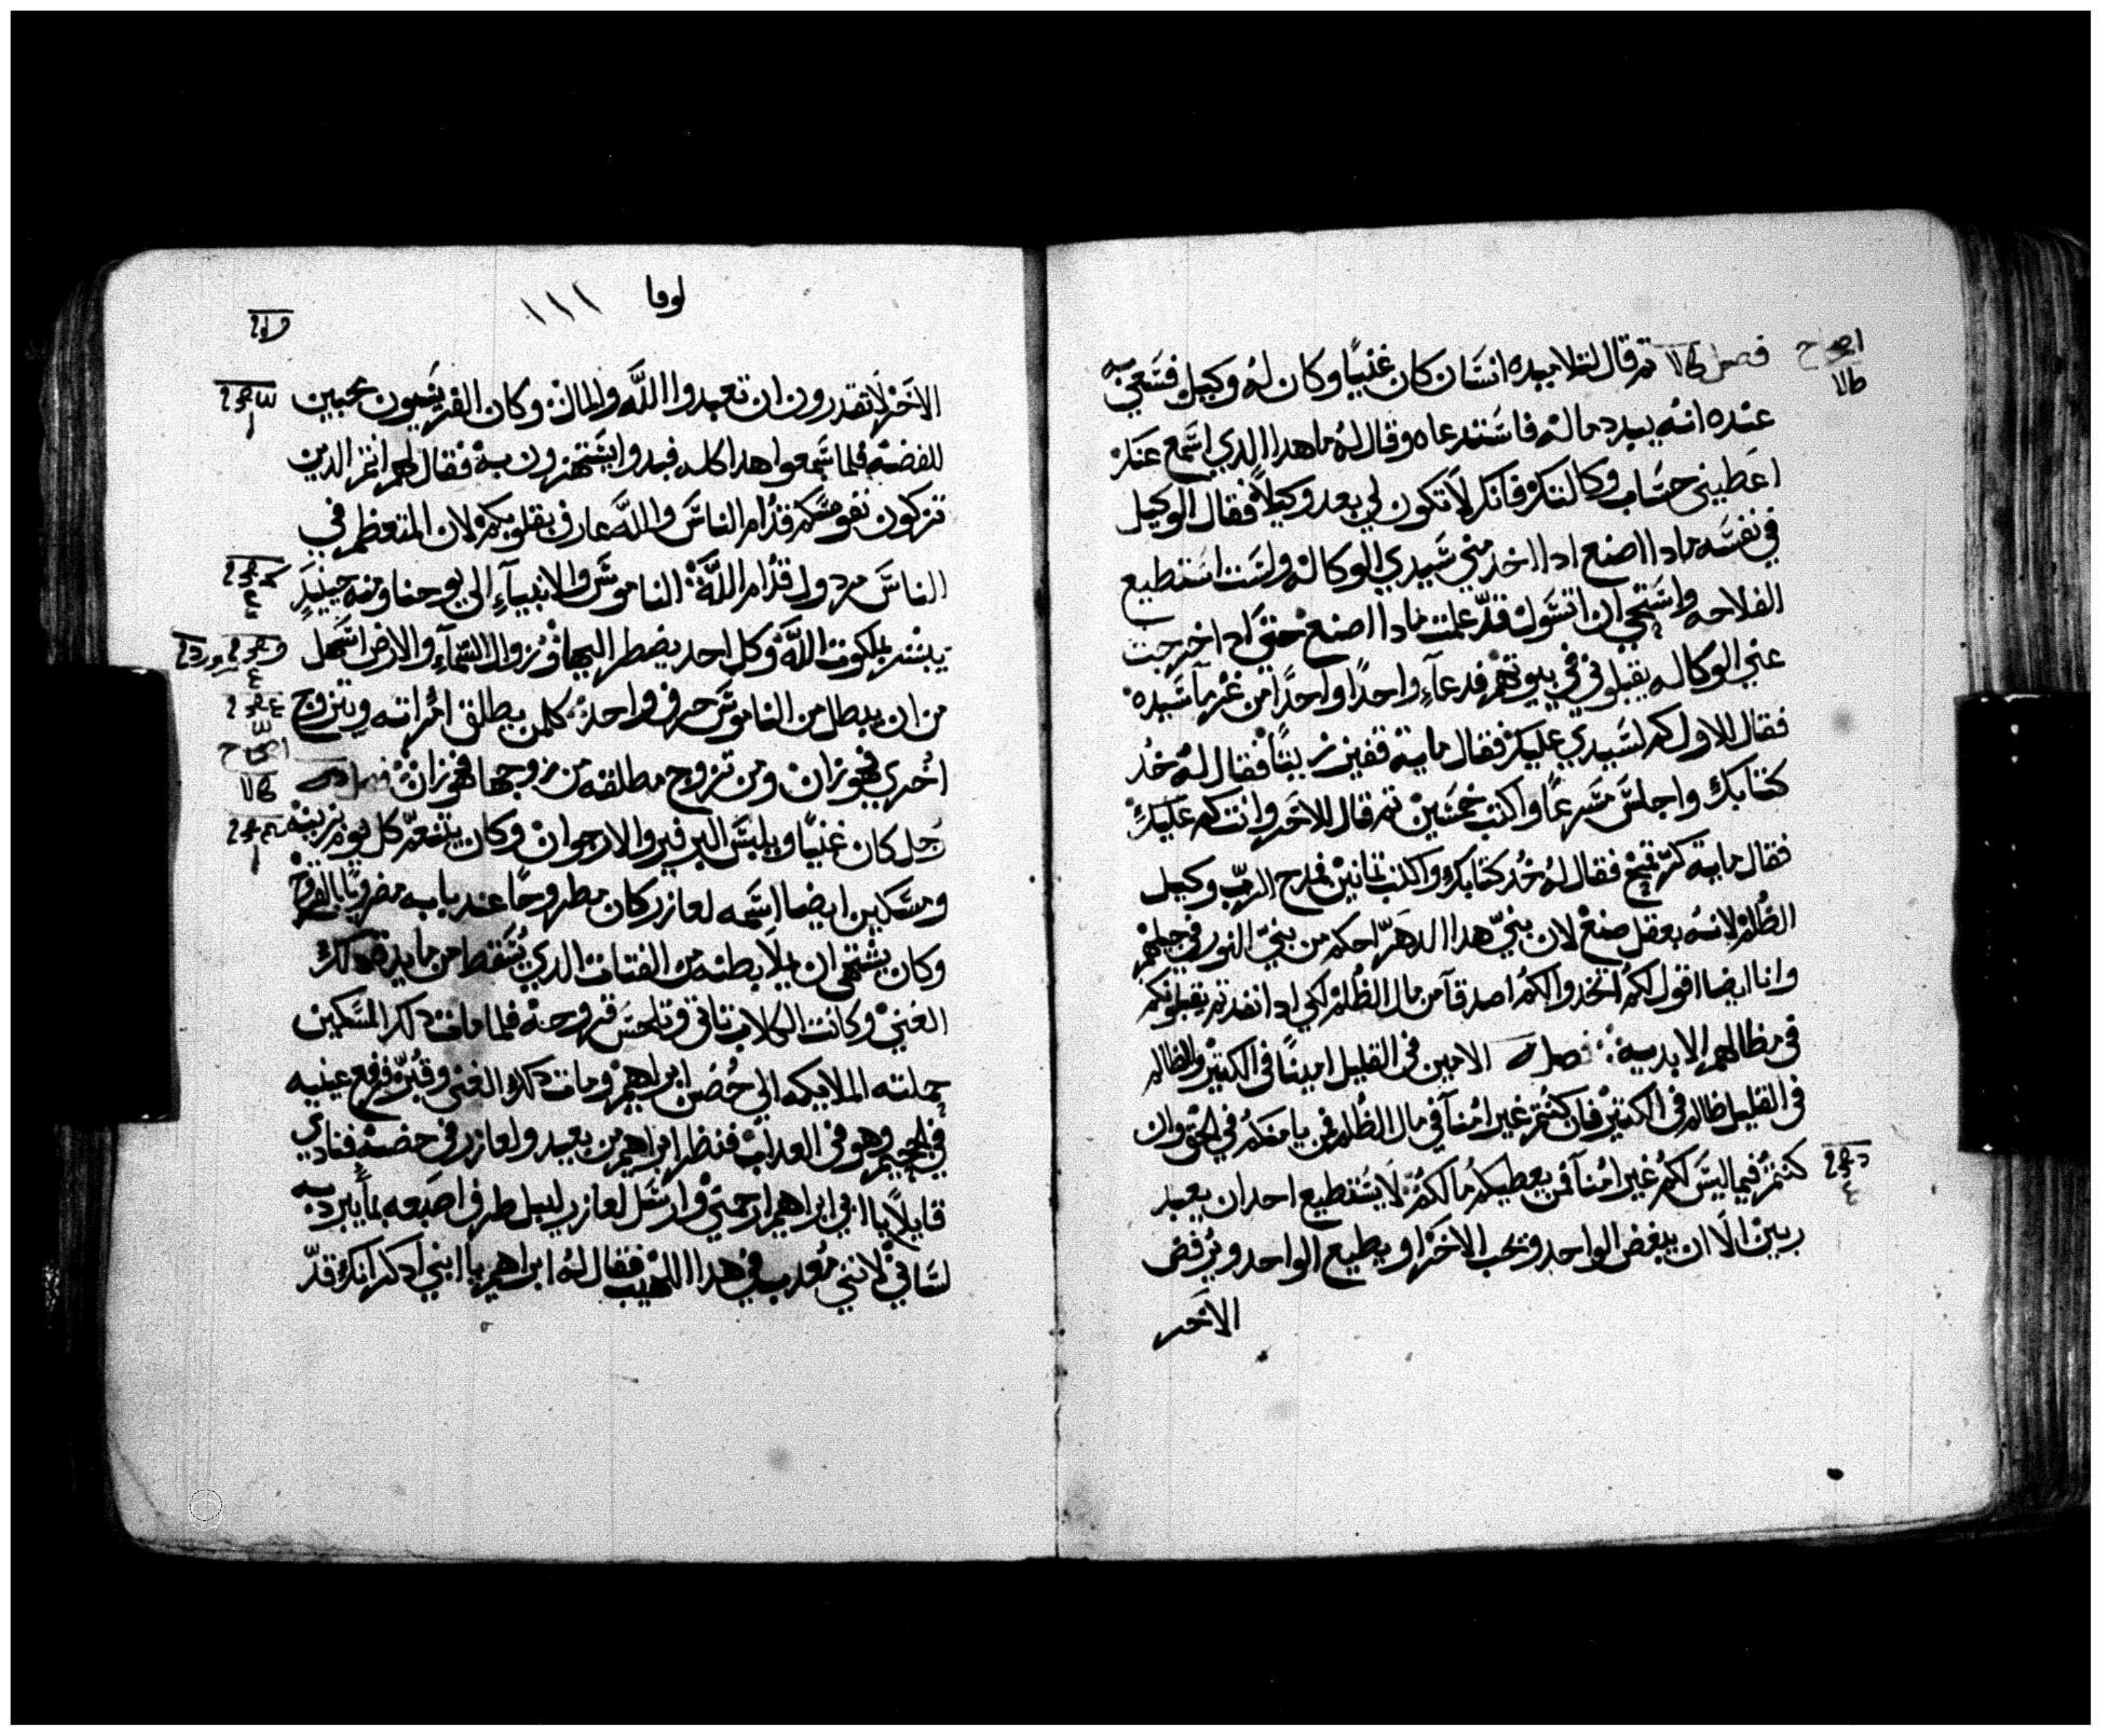 فصل ثم قال لتلاميده انسَان كان غنيًا وكان لهُ وكيل فسَعي به
عنده انه يبدد ماله فاسَتدعاه وقال لهُ ما هدا الدي اسَمع عنك
اعَطيني حسَاب وكالتك فانك لاَ تكون لي بعد وكيلاً فقال الوكيل
في نفسَه مادا اصنع ادا اخد مني سَيدي الوكاله ولسَت اسَتطيع
الفلاحه واسَتحي ان اتسَول قد علمت مادا اصنع حتي ادا خرجت
عني الوكاله يقبلوني في بيوتهم فدعاء واحدًا واحدًا من غرمآ سَيده
فقال للاول كم لسَيدي عليك فقال ماية قفيز زيتًا فقال لهُ خُد
كتابك واجلسَ مسَرعًا واكتب خمسَين ثم قال للاخَر وانت كم عليك
فقال ماية كر قمح فقال لهُ خُد كتابك واكتب تمانين فمدح الرب وكيل
الظُلم لانهُ بعقل صنع لان بني هدا الدهر احكم من بني النور في جيلهم
وانا ايضا اقول لكمُ اتخدوا لكمُ اصدقآ من مال الظُلم لكي ادا نفدتم يقبلونكم
في مظالهم الابديه فصل الامين في القليل امينًا في الكتير والظالم
في القليل ظالم في الكتير فان كنتم غير امُنآ في مال الظُلم فمن يامنكمُ في الحق وان
كنتمُ فيما ليسَ لكمُ غير امُنآ فمن يعطيكمُ مالكمُ لاَ يسَتطيع احد ان يعبد
ربين الاَ ان يبغض الواحد ويحب الاخَر او يطيع الواحد ويرُفض
الاخَر
لوقا ١١١
الاخَر لاَ تقدرون ان تعبدوا اللَّه والمال وكان الفريسَيون محبين
للفضه فلما سَمعوا هدا كله فبدوا يسَتهزون به فقال لهم انتم الدين
تزكون نفوسَكم قدُام الناسَ واللَّه عارف بقلوبكم لان المتعظم في
الناسَ مردول قدُام اللَّه الناموسَ والانبيآءِ الي يوحنا ومنه حينيدٍ
يبشر بملكوت اللَّه وكل احد يضطر اليها وزوال السَمآءِ والارض اسَهل
من ان يبطل من الناموسَ حرف واحد كلمن يطلق امُراته ويتزوج
اخُري فهو زان ومن تزوج مطلقه من زوجها فهو زان
رجُل كان غنيًا ويلبسَ البرفير والارجوان وكان يتنعم كل يوم بزينه
ومسَكين ايضا اسَمه لعازر كان مطروحًا عند بابه مضروبًا بالقروح
وكان يشتهي ان يملاَ بطنه من الفتات الدي يُسَقط من مايدة دلك
الغني وكانت الكلاب تاتي وتلحسَ قروحه فلما مات دلك المسَكين
حملته الملايكه الي حُضن ابراهيم ومات دلك الغني وقُبر فرفع عينيه
في الجحيم وهو في العداب فنظر ابراهيم من بعيد ولعازر في حضنه فنادي
قايلاً يا ابي ابراهيم ارحمني وارسَل لعازر ليبل طرف اصَبعه بمآ يبرد به
لسَاني لانني مُعدب في هدا اللهيب فقال لهُ ابراهيم يا ابني ادكر انك قد